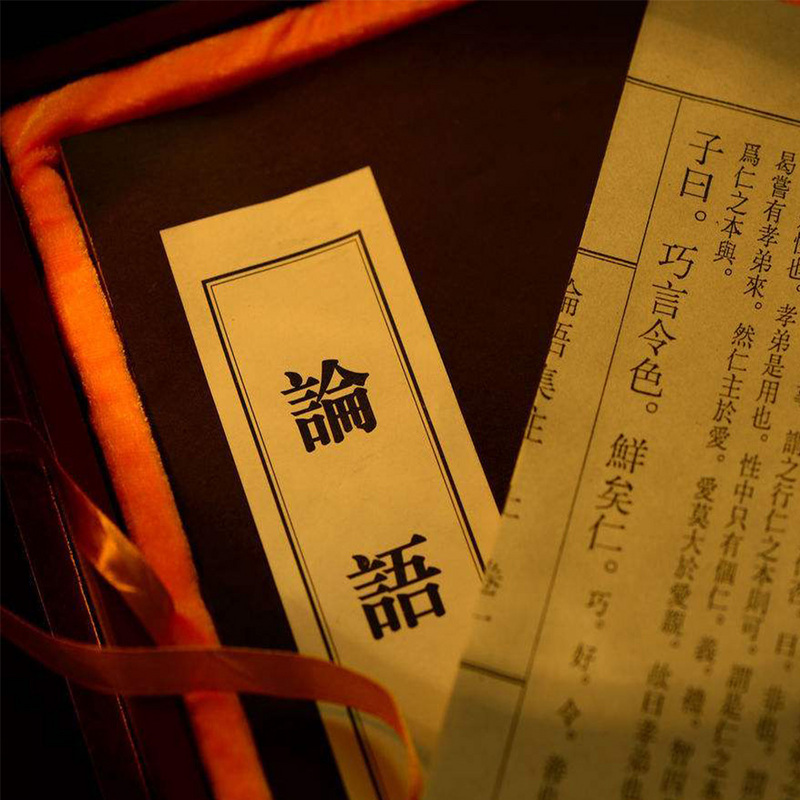 論
語
曰。非也。謂
謂之行仁之本則可。謂是仁之本
也。孝弟是用也。性中只有個仁。義。禮。智四
曷嘗有孝弟來。然仁主於愛。愛莫大於愛親。故曰孝弟也
爲仁之本與。
子曰。巧言令色。鮮矣仁。巧。好。令。善
論語集注 卷一